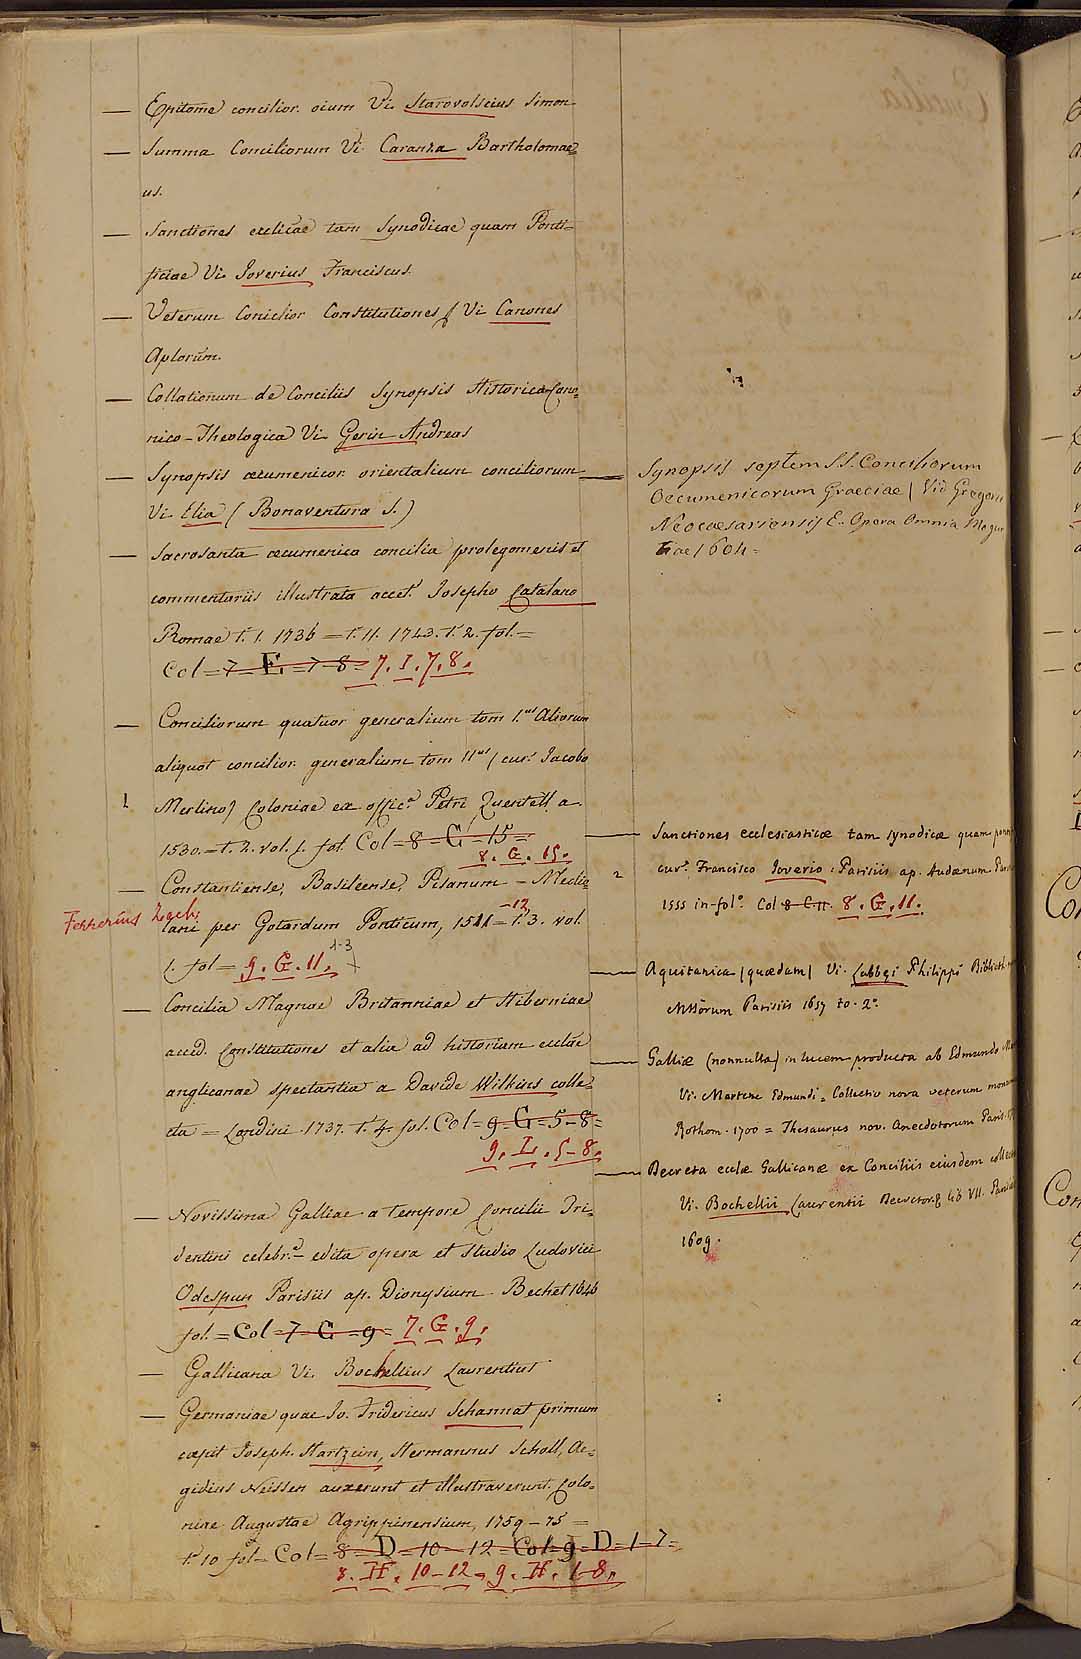 — Epitome concilior. oium Vi. Starovolscius Simon
— Summa Conciliorum Vi. Caranza Bartholomae=
us.
— Sanctiones ecclicae tam Synodicae quam Ponti=
ficiae Vi. Joverius Franciscus.
— Veterum Concilior Constitutiones Vi Canones
Aplorum.
— Collationum de Conciliis Synopsis Historico-Cano=
nico-Theologica Vi. Gerin Andreas
— Synopsis œcumenicor. orientalium conciliorum
Vi. Elia (Bonaventura S.)
— Sacrosanta œcumenica concilia prolegomenis et
commentariis illustrata accet. Josepho Catalano
Romae t. 1. 1736 = t. 11. 1743. t. 2. fol. =
Col = 7 - E. = 7 - 8 = 7. I. 7. 8.
— Conciliorum quatuor generalium tom 1.us Aliorum
aliquot concilior. generalium tom 11us (cur. Jacobo
1. Merlino) Coloniae ex offic.a Petri Quentell a.
1530. = t. 2. vol. 1. fol. Col = 8 - G - 15 =
8. G. 15.
— Constantiense, Basileense, Pisanum - Medio
Ferrerius Zach.
lani per Gotardum Ponticum, 1511 -12 = t. 3. vol.
1. fol = 9. G. 11. 1-3
— Concilia Magnae Britanniae et Hiberniae
acced. Constitutiones et alia ad historiam ecclae
anglicanae spectantia a Davide Wilkins colle=
cta = Londini 1737. t. 4. fol. Col = 9 - G = 5 - 8 =
9. L. 5-8.
— Novissima Galliae a tempore Concilii Tri=
dentini celebr.a edita opera et studio Ludovici
Odespun Parisiis ap. Dionysium Bechet 1646
fol. = Col = 7 - G = 9 = 7. G. 9.
— Gallicana Vi. Bochellus Laurentius
— Germaniae quae Jo. Fridericus Schannat primum
cœpit Joseph. Hartzeim, Hermannus Scholl, Ae=
gidius Neissen auxerunt et illustraverunt. Colo=
niae Augustae Agrippinensium, 1759 - 75 =
t. 10 fol = Col = 8 = D = 10 - 12 = Col = 9 = D = 1 - 7 =
8. H. 10-12, 9. H. 1-8.
— Synopsis septem S.S. Conciliorum
Oecumenicorum Graeciae / Vid Gregorii
Neocæsariensis E. Opera Omnia Mogun
tiae 1604 =
— Sanctiones ecclesiasticæ tam synodicæ quam
2 cur. Francisco Joverio. Parisiis ap. Audœnum
1555 in-fol.o Col 8 - C. 11. 8. G. 11.
— Aquitanica (quædam) Vi. Labbei Philippi
MSSorum Parisiis 1657 to. 2.o
— Galliæ (nonnulla) in lucem producta ab Edmundo
Vi. Martene Edmundi = Collectio nova veterum
Rothom. 1700 = Thesaurus nov. Anecdotorum Paris.
— Decreta ecclæ Gallicanæ ex Conciliis eiusdem
Vi. Bochellii Laurentii Decretor. lib VII.
1609.